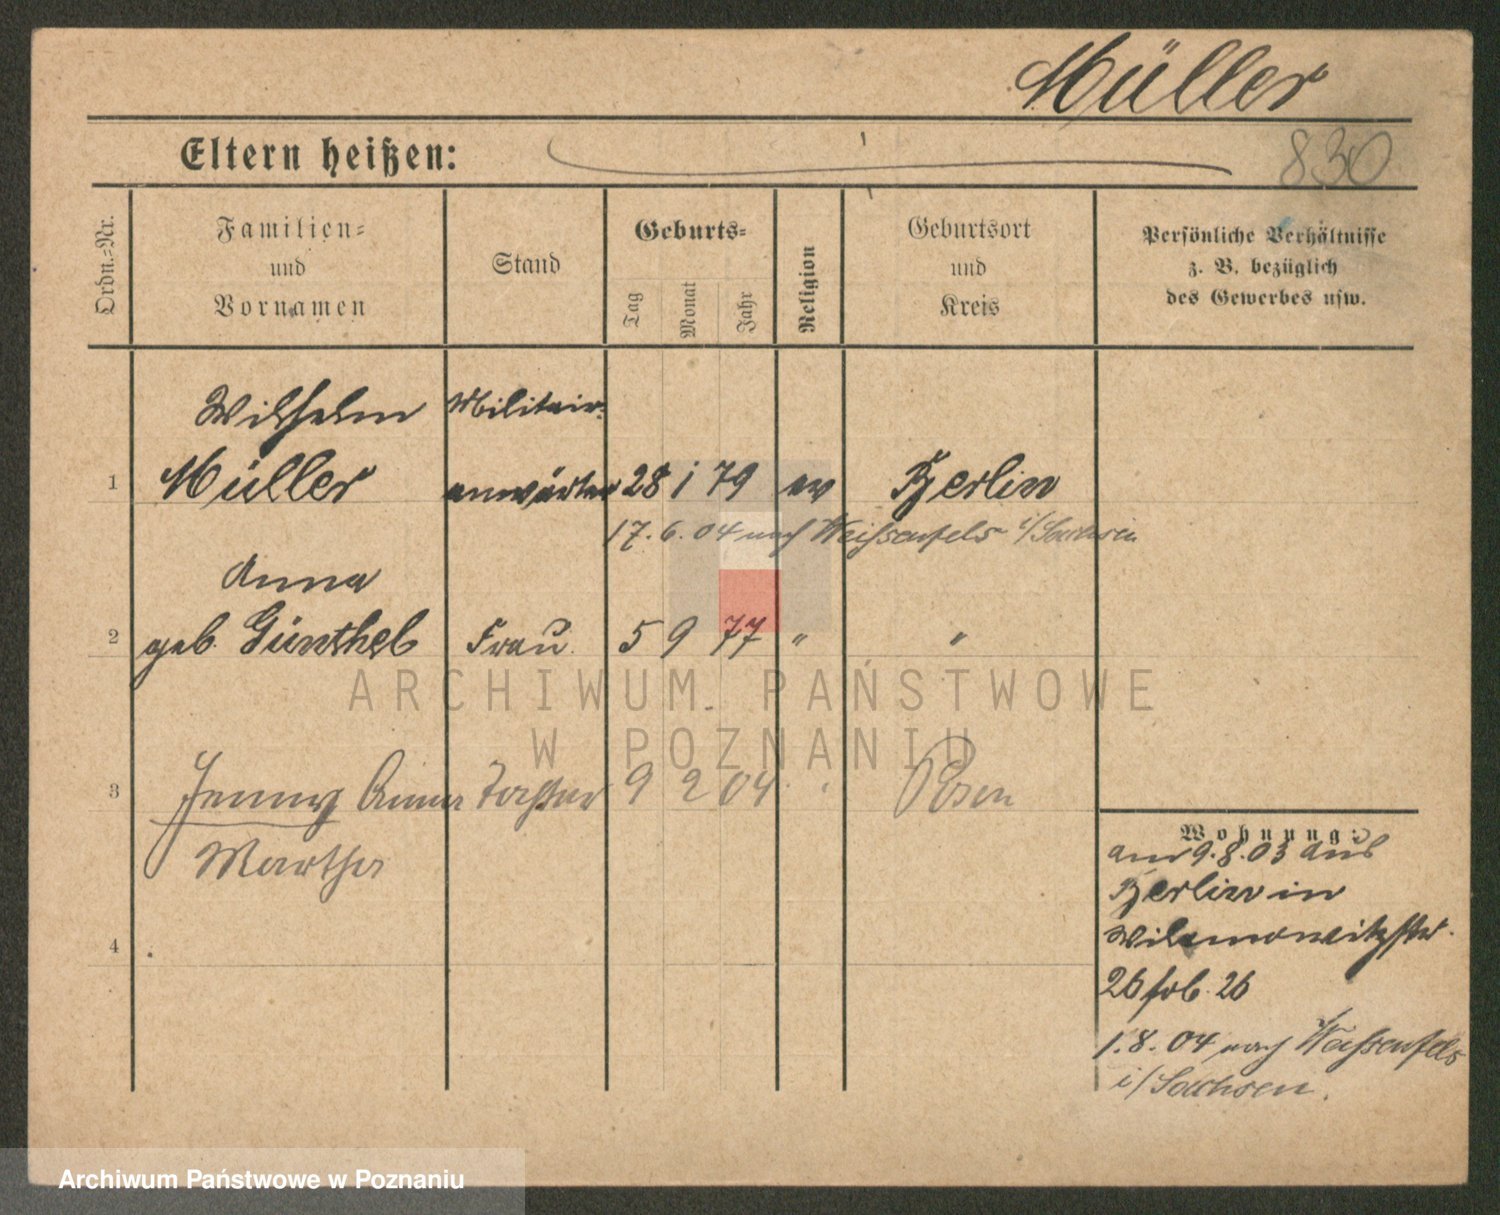 Müller
Eltern heißen:
830
Ordn.-Nr.
Familien-
und
Vornamen
Stand
Geburts-
Tag
Monat
Jahr
Religion
Geburtsort
und
Kreis
Persönliche Verhältnisse
z. B. bezüglich
des Gewerbes usw.
Wilhelm Militair-
1 Müller anwärter 28 1 79 ev Berlin
17. 6. 04 nach Weißenfels i/Sachsen
Anna
2 geb. Günthel Frau 5 9 77 " "
ARCHIWUM PAŃSTWOWE
W POZNANIU
3 Jenny Anna Tochter 9 2 04 " Posen
Martha
4
Wohnung:
am 9.8.03 aus
Berlin in
Wilamowitzstr.
26 frb. 26
1.8.04 nach Weißenfels
i/Sachsen.
Archiwum Państwowe w Poznaniu